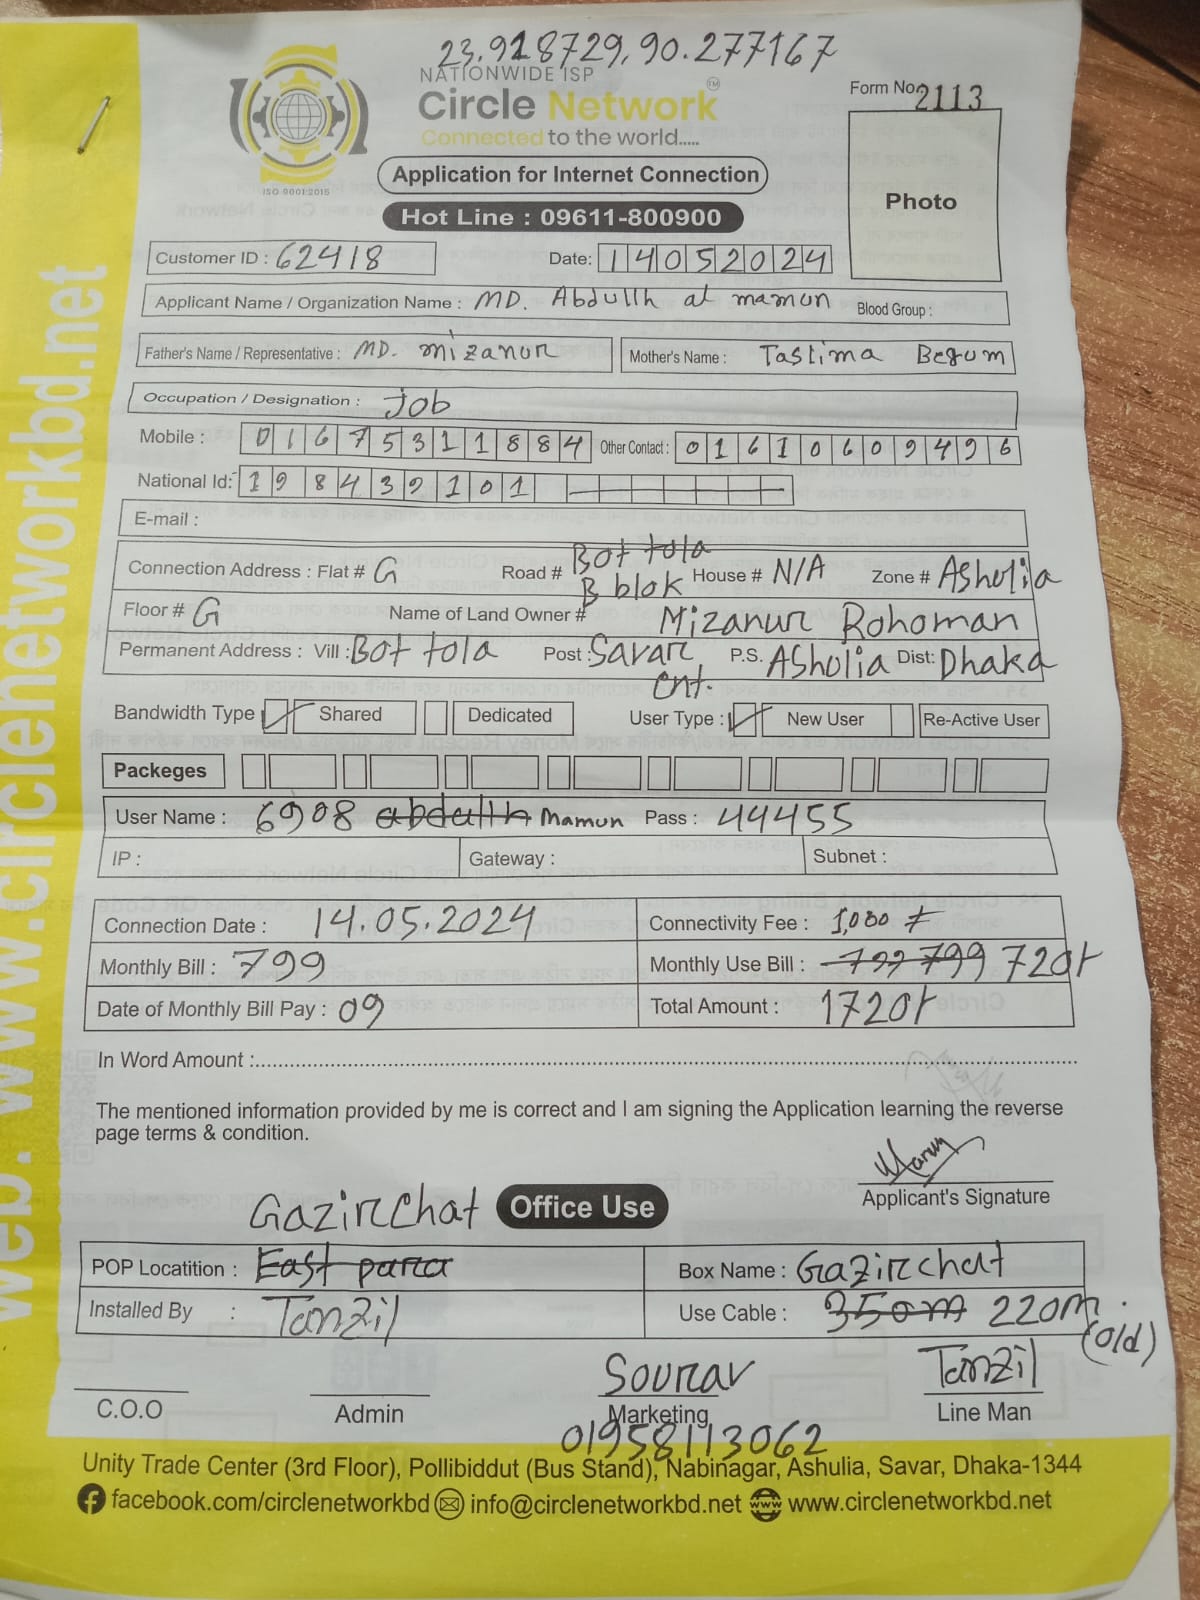 23.918729, 90.277167
NATIONWIDE ISP
Circle Network TM
Connected to the world.....
ISO 9001:2015
Form No. 2113
Photo
Application for Internet Connection
Hot Line : 09611-800900
Customer ID : 62418 Date: 14052024
Applicant Name / Organization Name : MD. Abdullh al mamun Blood Group :
Father's Name / Representative : MD. mizanur Mother's Name : Taslima Begum
Occupation / Designation : Job
Mobile : 01675311884 Other Contact : 01610609496
National Id: 1984392101
E-mail :
Connection Address : Flat # G Road # Bot tola B blok House # N/A Zone # Asholia
Floor # G Name of Land Owner # Mizanur Rohoman
Permanent Address : Vill : Bot tola Post : Savar Cnt. P.S. Asholia Dist: Dhaka
Bandwidth Type Shared Dedicated User Type : New User Re-Active User
Packeges
User Name : 6908 abdullh Mamun Pass : 44455
IP : Gateway : Subnet :
Connection Date : 14.05.2024 Connectivity Fee : 1,000 ৳
Monthly Bill : 799 Monthly Use Bill : 799 799 720৳
Date of Monthly Bill Pay : 09 Total Amount : 1720৳
In Word Amount :
The mentioned information provided by me is correct and I am signing the Application learning the reverse
page terms & condition.
Applicant's Signature
Gazirchat Office Use
POP Locatition : East para Box Name : Gazirchat
Installed By : Tanzil Use Cable : 350m 220m. (old)
C.O.O Admin Sourav Marketing Tanzil Line Man
01958113062
Unity Trade Center (3rd Floor), Pollibiddut (Bus Stand), Nabinagar, Ashulia, Savar, Dhaka-1344
facebook.com/circlenetworkbd info@circlenetworkbd.net www.circlenetworkbd.net
web : www.circlenetworkbd.net